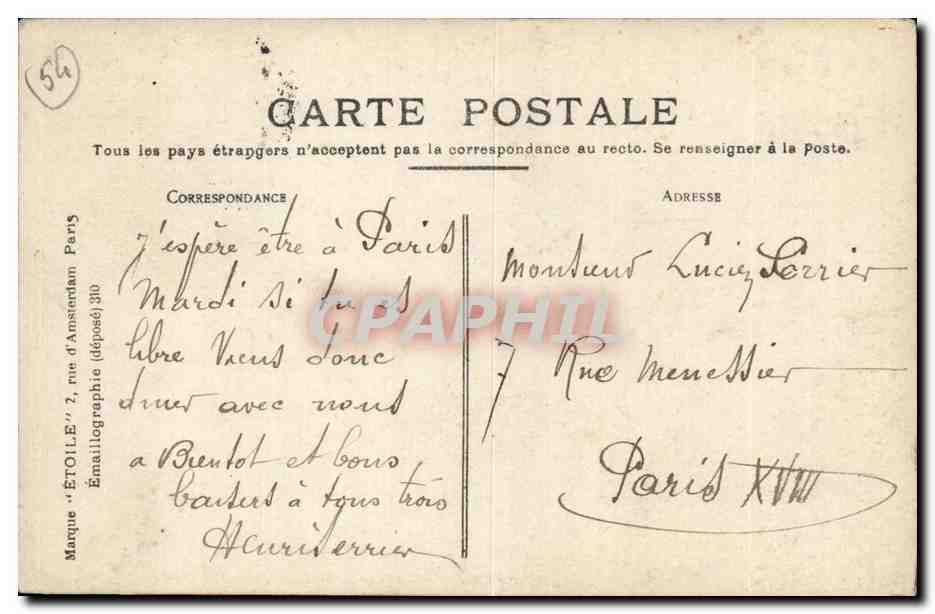 54
CARTE POSTALE
Tous les pays étrangers n'acceptent pas la correspondance au recto. Se renseigner à la Poste.
CORRESPONDANCE
J'espère être à Paris
Mardi si tu es
libre Viens donc
diner avec nous
a Bientot et bons
baisers à tous trois
Henri Perrier
ADRESSE
Monsieur Lucien Perrier
7 Rue Menessier
Paris XVIII
Marque "ÉTOILE" 2, rue d'Amsterdam Paris
Émaillographie (déposé) 310
CPAPHIL